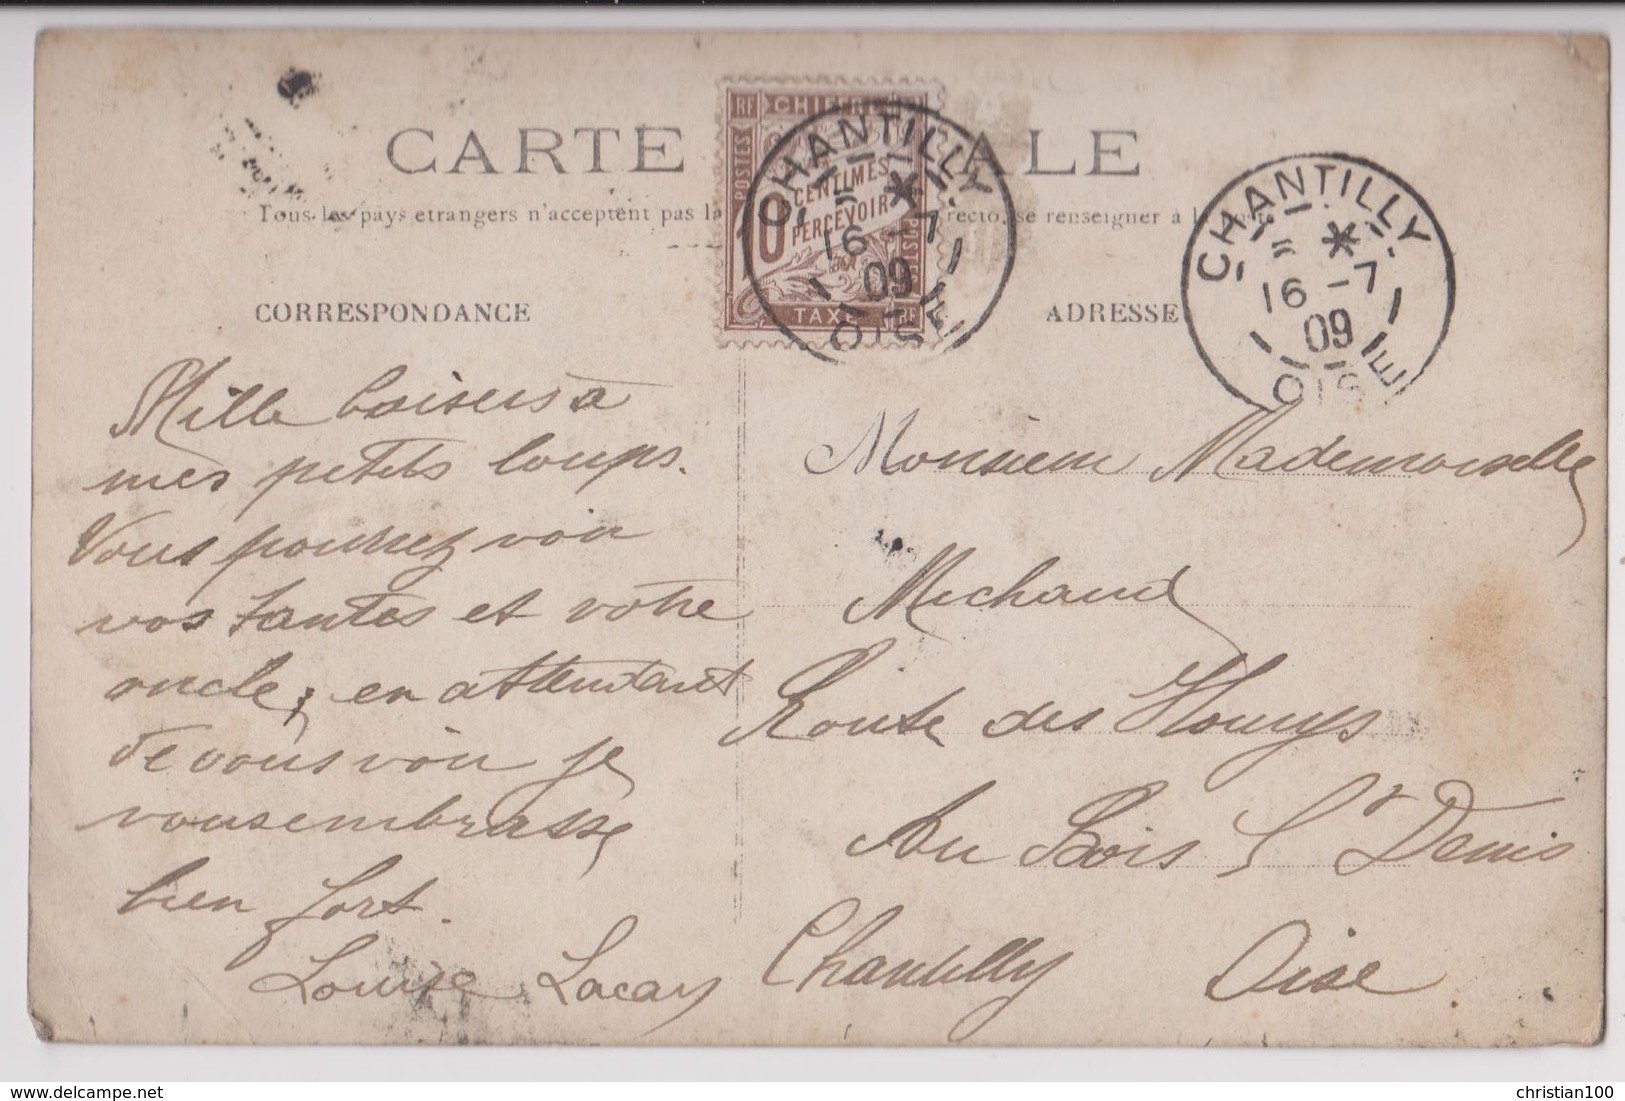 CARTE POSTALE
Tous les pays etrangers n'acceptent pas la recto, se renseigner à la Poste
RF CHIFFRE
POSTES
0 CENTIMES
PERCEVOIR
POSTES
TAXE RF
CHANTILLY
16 - 7
09
OISE
CHANTILLY
16 - 7
09
OISE
CORRESPONDANCE
ADRESSE
Mille baisers à
mes petits loups.
Vous pourrez voir
vos tantes et votre
oncle, en attendant
de vous voir je
vous embrasse
bien fort.
Louise Lacay
Monsieur Mademoiselle
Michaud
Route des Houys
Au Bois St Denis
Chantilly Oise.
delcampe.net
christian100